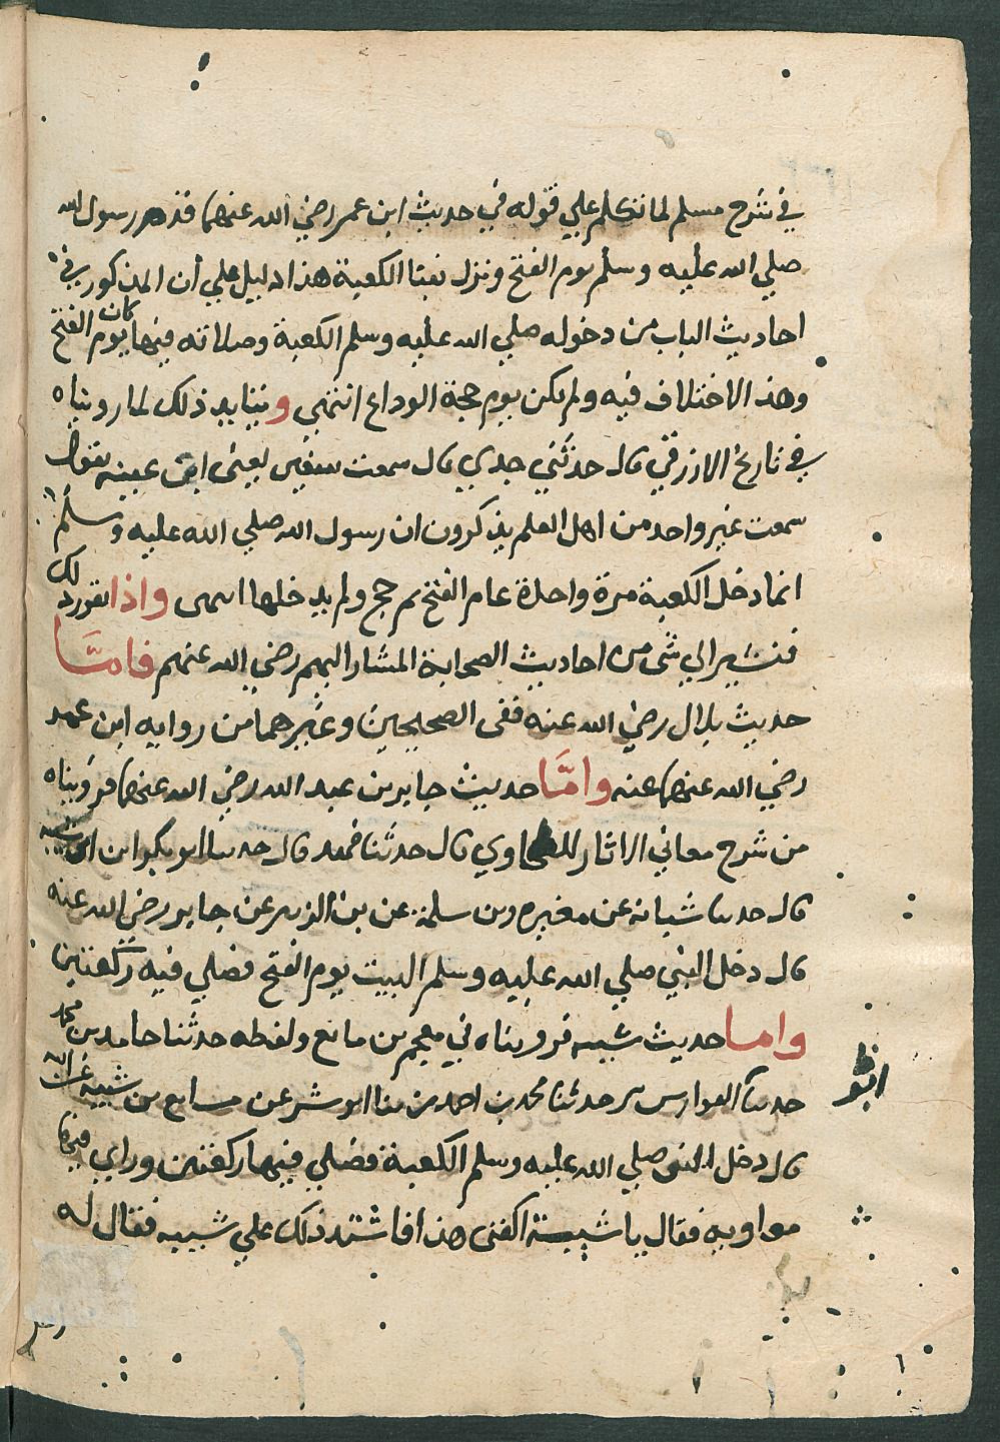 في شرح مسلم لما تكلم علي قوله في حديث ابن عمر رضي الله عنهما قدم رسول الله
صلي الله عليه وسلم يوم الفتح ونزل بفنا الكعبة هذا دليل علي أن المذكور في
احاديث الباب من دخوله صلي الله عليه وسلم الكعبة وصلاته فيها كان يوم الفتح
وهذا لا اختلاف فيه ولم يكن يوم حجة الوداع انتهي ويتايد ذلك لما رويناه
في تاريخ الازرقي قال حدثني جدي قال سمعت سفين يعني ابن عيينه يقول
سمعت غير واحد من اهل العلم يذكرون ان رسول الله صلي الله عليه وسلم
انما دخل الكعبة مرة واحدة عام الفتح ثم حج ولم يدخلها انتهى واذا تقرر ذلك
فنشير الي شي من احاديث الصحابة المشار اليهم رضي الله عنهم فامتا
حديث بلال رضي الله عنه ففي الصحيحين وغيرهما من روايه ابن عمر
رضي الله عنهما عنه وامتا حديث جابر بن عبد الله رضي الله عنهما فرويناه
من شرح معاني الاثار للطحاوي قال حدثنا فهد قال حدثنا ابو بكر ابن ابي شيبه
قال حدثنا شبابه عن مغيره بن سلمة عن بن الزبير عن جابر رضي الله عنه
قال دخل النبي صلي الله عليه وسلم البيت يوم الفتح فصلي فيه ركعتين
واما حديث شيبه فرويناه في معجم بن مانع ولفظه حدثنا حامد بن محمد
حدثنا الفوارس حدثنا محمد بن احمد بن ابو بشر عن مسافع بن شيبه عن ابيه
قال دخل النبي صلي الله عليه وسلم الكعبة فصلي فيها ركعتين وراي فيها
معاويه فقال يا شيبة اكفني هذا فاشتد ذلك علي شيبه فقال له